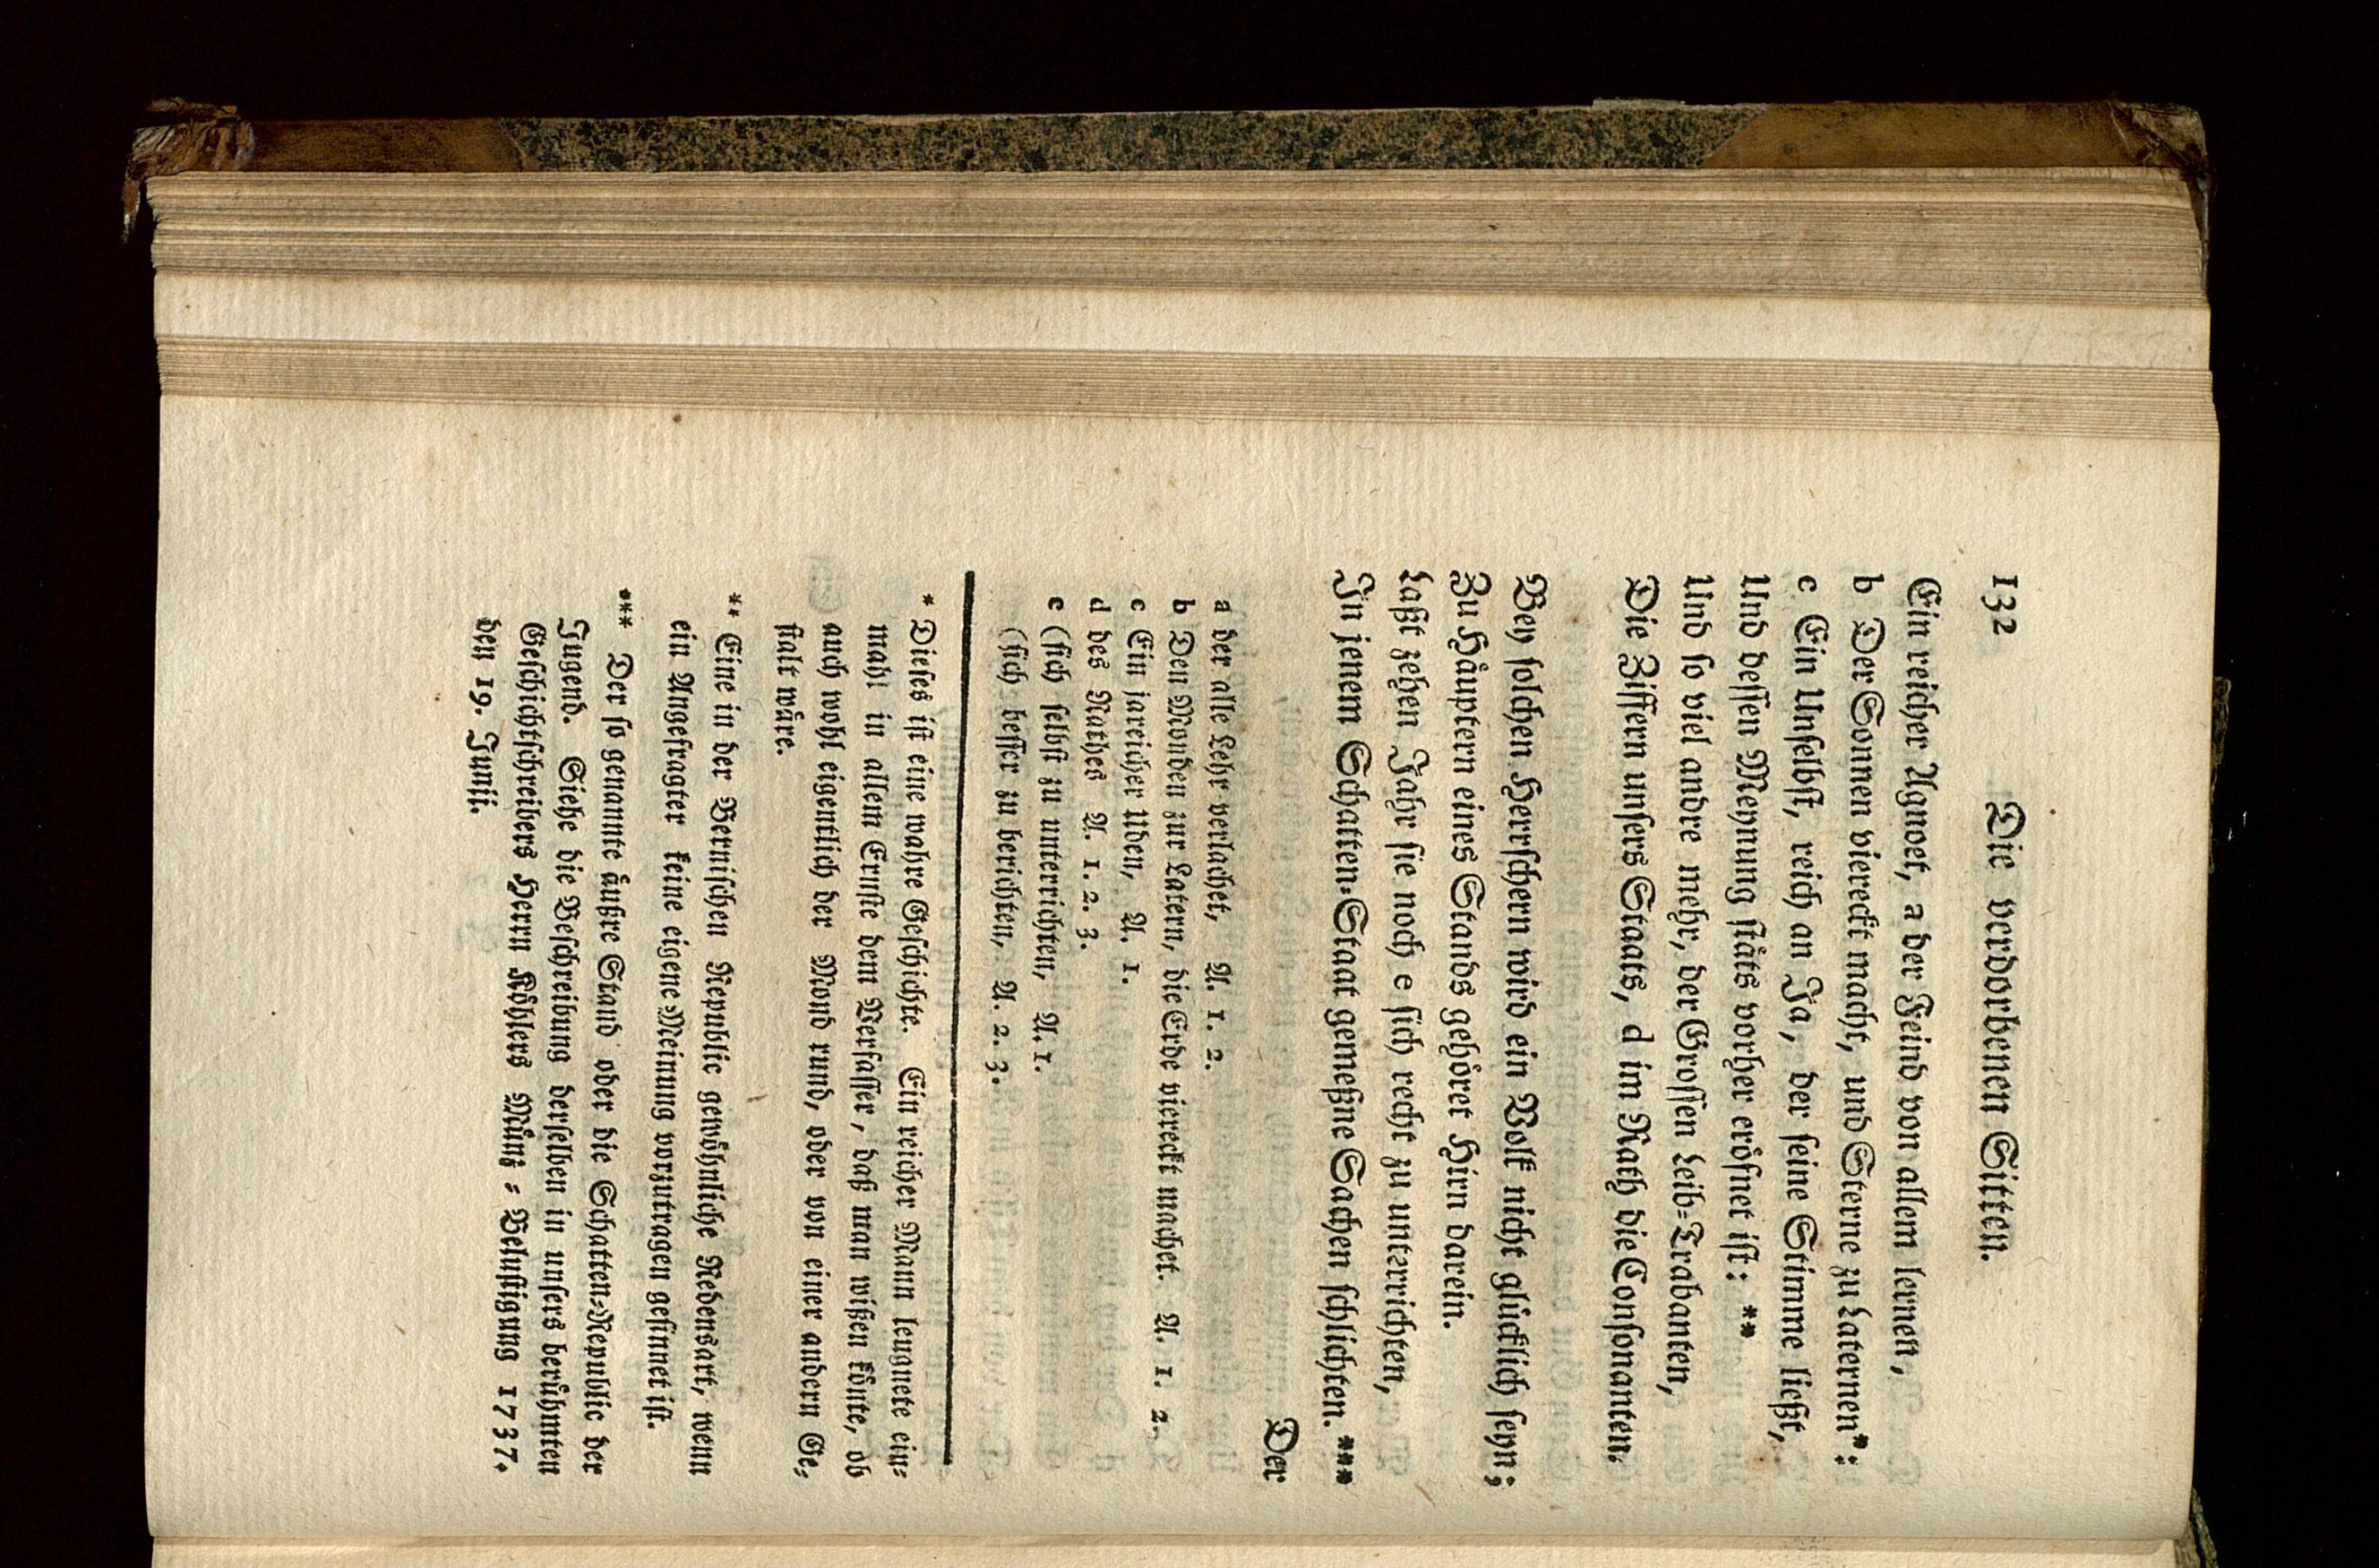 132 Die verdorbenen Sitten.
Ein reicher Agnoet, a der Feind von allem lernen,
b Der Sonnen viereckt macht, und Sterne zu Laternen*;
c Ein Unselbst, reich an Ja, der seine Stimme ließt,
Und dessen Meynung stäts vorher eröfnet ist: **
Und so viel andre mehr, der Grossen Leib-Trabanten,
Die Ziffern unsers Staats, d im Rath die Consonanten.
Bey solchen Herrschern wird ein Volk nicht glücklich seyn;
Zu Häuptern eines Stands gehöret Hirn darein.
Laßt zehen Jahr sie noch e sich recht zu unterrichten,
In jenem Schatten-Staat gemeßne Sachen schlichten. ***
Der
a der alle Lehr verlachet, A. 1. 2.
b Den Monden zur Latern, die Erde viereckt machet. A. 1. 2.
c Ein jareicher Uden, A. 1.
d des Rathes A. 1. 2. 3.
e (sich selbst zu unterrichten, A. 1.
(sich besser zu berichten, A. 2. 3.
* Dieses ist eine wahre Geschichte. Ein reicher Mann leugnete ein-
mahl in allem Ernste dem Verfasser, daß man wißen könte, ob
auch wohl eigentlich der Mond rund, oder von einer andern Ge-
stalt wäre.
** Eine in der Bernischen Republic gewöhnliche Redensart, wenn
ein Angefragter keine eigene Meinung vorzutragen gesinnet ist.
*** Der so genannte äußre Stand oder die Schatten-Republic der
Jugend. Siehe die Beschreibung derselben in unsers berühmten
Geschichtschreibers Herrn Köhlers Münz-Belustigung 1737.
den 19. Junii.